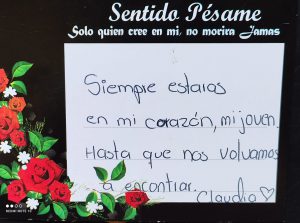 Sentido Pésame
Solo quien cree en mi, no morira Jamas
Siempre estaras
en mi corazón, mi joven.
Hasta que nos volvamos
a encontrar.
Claudia